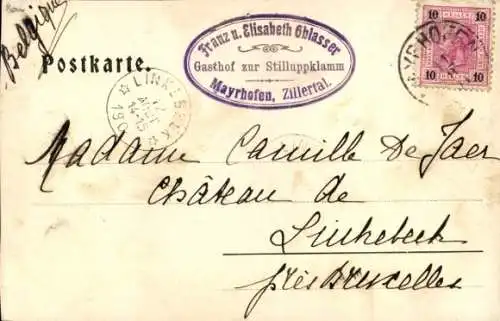 Belgique
Postkarte.
Franz u. Elisabeth Ghlasser
Gasthof zur Stilluppklamm
Mayrhofen, Zillertal.
10 10
10 10
MAYRHOFEN
LINKEBEEK
12
AOUT
14-15
190
Madame Camille De Jaer
Château de
Linkebeek
près Bruxelles